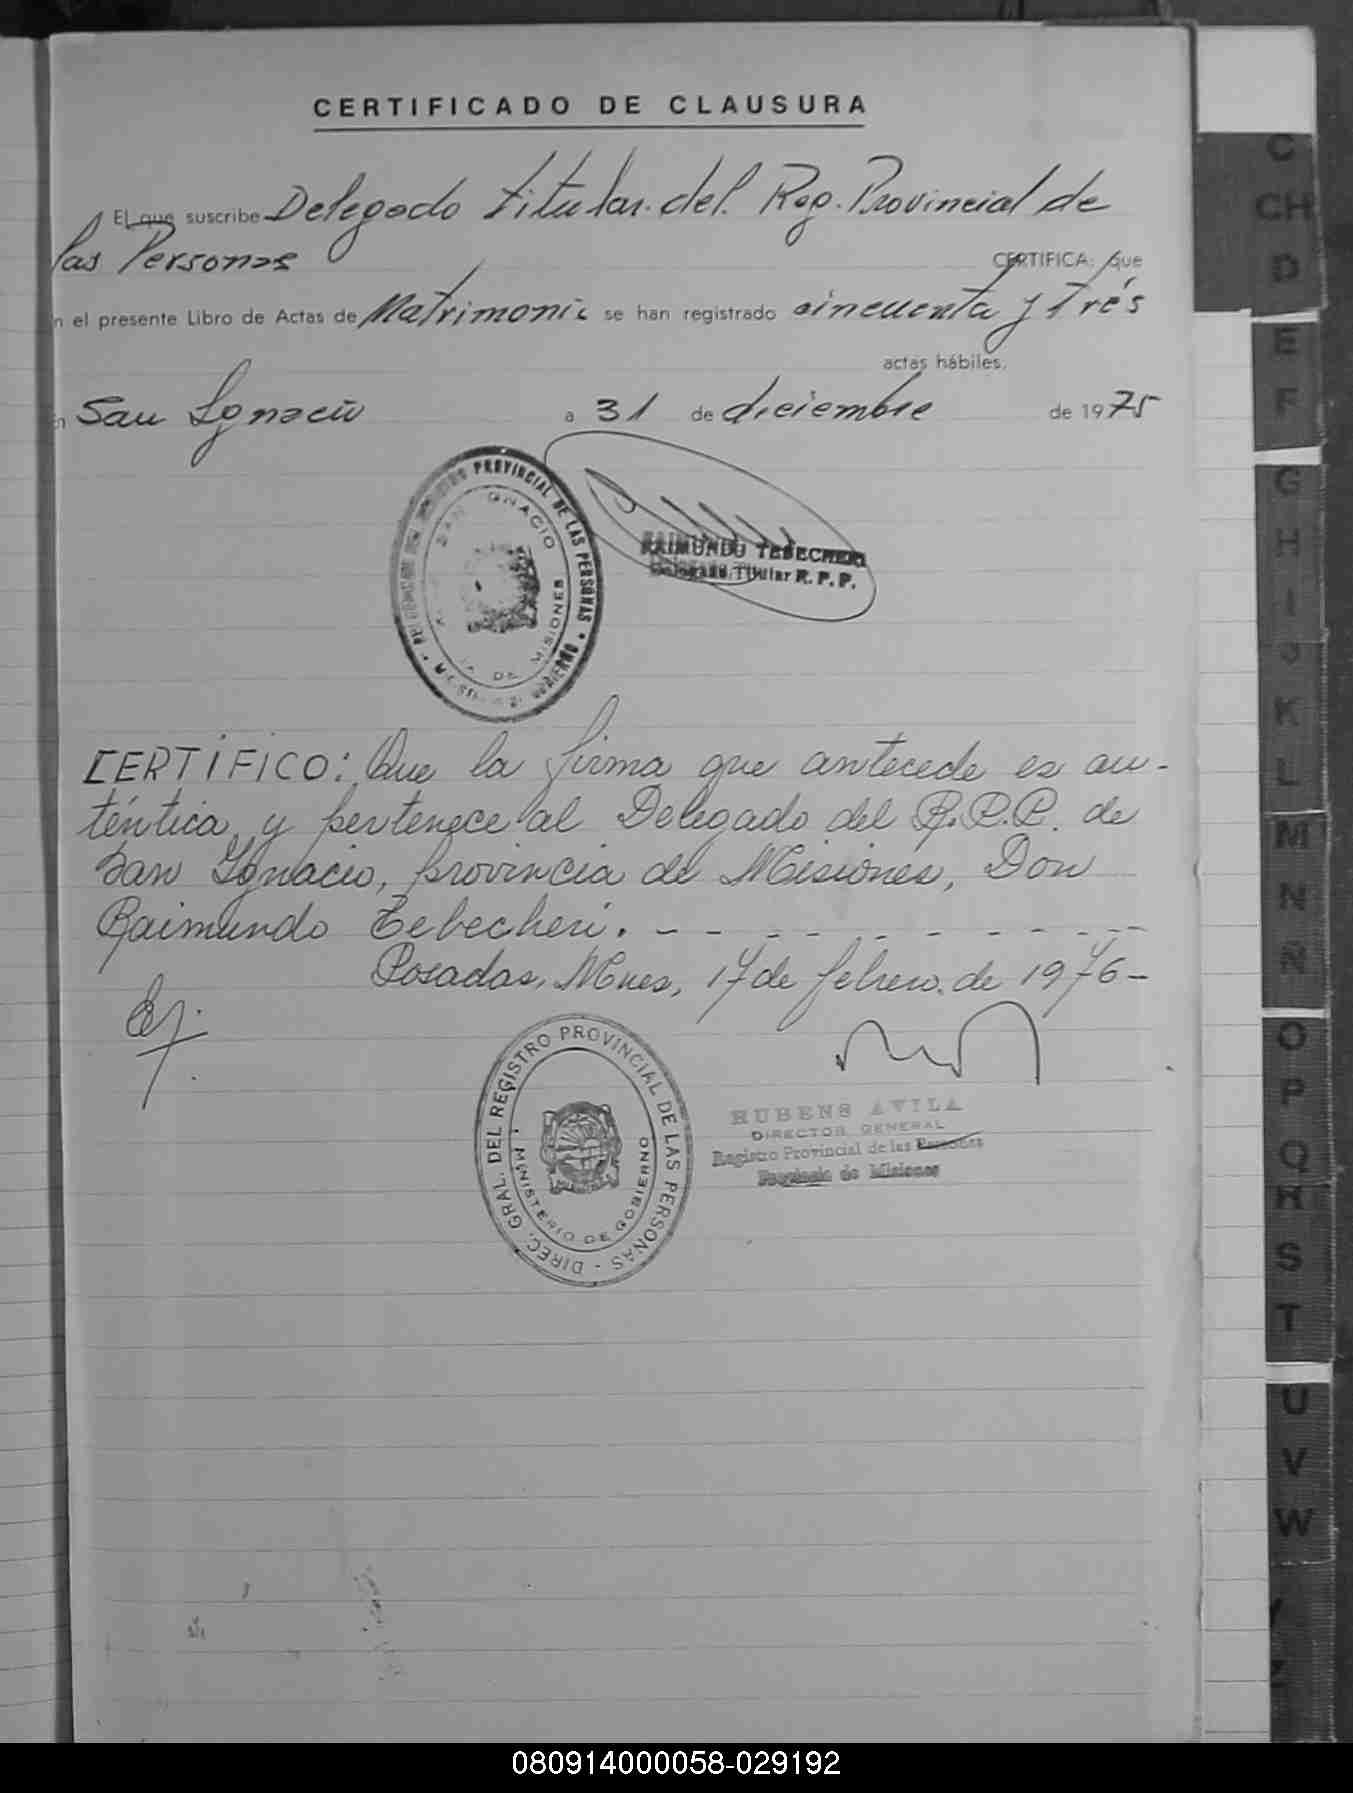 CERTIFICADO DE CLAUSURA
El que suscribe Delegado titular del Reg. Provincial de
las Personas CERTIFICA: que
n el presente Libro de Actas de Matrimonio se han registrado cincuenta y trés
actas hábiles.
n San Ignacio a 31 de diciembre de 1975
PROVINCIAL DE LAS PERSONAS
SAN IGNACIO
DE MISIONES
GOBIERNO
RAIMUNDO TEBECHERI
Delegado Titular R. P. P.
CERTIFICO: Que la firma que antecede es au-
téntica y pertenece al Delegado del R.P.P. de
San Ignacio, provincia de Misiones, Don
Raimundo Tebecheri. - - - - - - - - -
Posadas, Mnes, 17 de febrero de 1976-
DIREC. GRAL. DEL REGISTRO PROVINCIAL DE LAS PERSONAS -
MINISTERIO DE GOBIERNO
RUBENS AVILA
DIRECTOR GENERAL
Registro Provincial de las Personas
Provincia de Misiones
C
CH
D
E
F
G
H
I
J
K
L
M
N
Ñ
O
P
Q
R
S
T
U
V
W
Y
Z
080914000058-029192